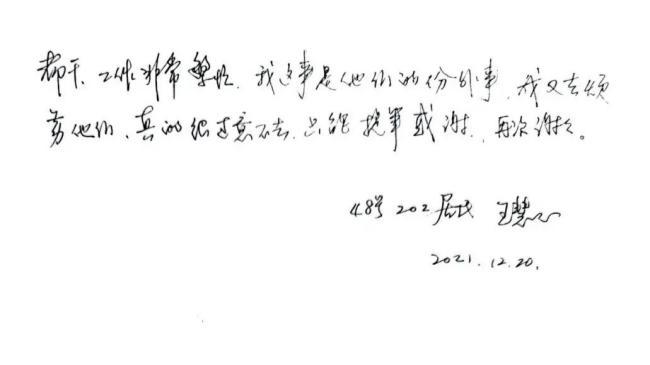 都干、工作非常繁忙、我这事是他们的份外事、我又去烦
劳他们、真的很过意不去、只能提笔感谢、再次谢谢。
48号202居民 王慧心
2021.12.20.